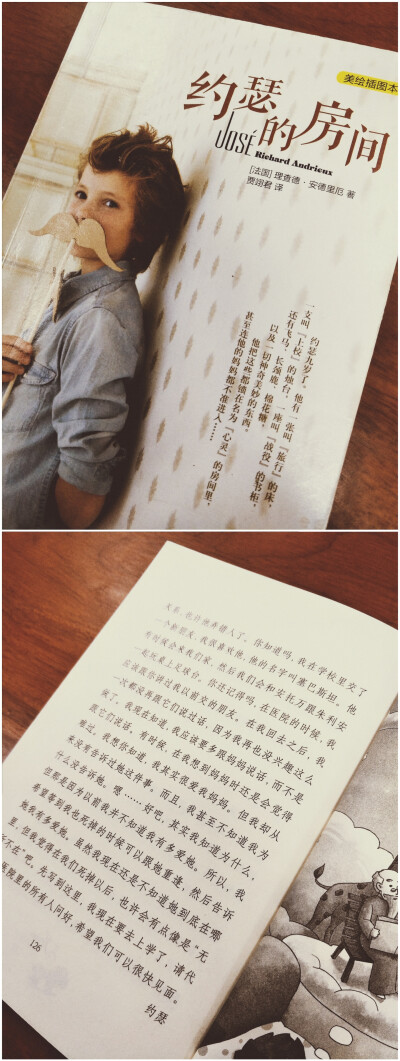 美绘插图本
约瑟的房间
JOSÉ
Richard Andrieux
[法国] 理查德·安德里厄 著
贾翊君 译
约瑟九岁了。他有一张叫『旅行』的床，
一支叫『上校』的烛台，一座叫『战役』的书柜，
还有飞马、长颈鹿、棉花糖，
以及一切神奇美妙的东西。
他把这些都锁在名为『心灵』的房间里，
甚至连他的妈妈都不准进入……
关系，也许她弄错人了。你知道吗，我在学校里交了
一个新朋友，我很喜欢他，他的名字叫塞巴斯坦。他
有时候会来我们家，然后我们会和安托万跟朱利安
一起玩桌上足球台。你还记得吗，在医院的时候，我
应该跟你讲过我以前交的朋友。在我回去之后，我
一次都没再跟它们说过话，因为我再也没兴趣这么
做了。我现在知道，我应该要多跟妈妈说话，而不是
跟它们说话。有时候，在我想到妈妈时还是会觉得
难过。我想你知道，我其实很爱我妈妈。但我却从
来没有告诉过她这件事。而且，我甚至不知道我为
什么没告诉她。嗯……好吧，其实我知道为什么，
但那是因为以前我并不知道我有多爱她。所以，我
希望等到我也死掉的时候可以跟她重逢，然后告诉
她我有多爱她。虽然我现在还是不知道她到底在哪
里，但我觉得在我们死掉以后，也许会有点像是“无
所不在”吧。先写到这里，我现在要去上学了，请代
医院里的所有人问好，希望我们可以很快见面。
约瑟
126